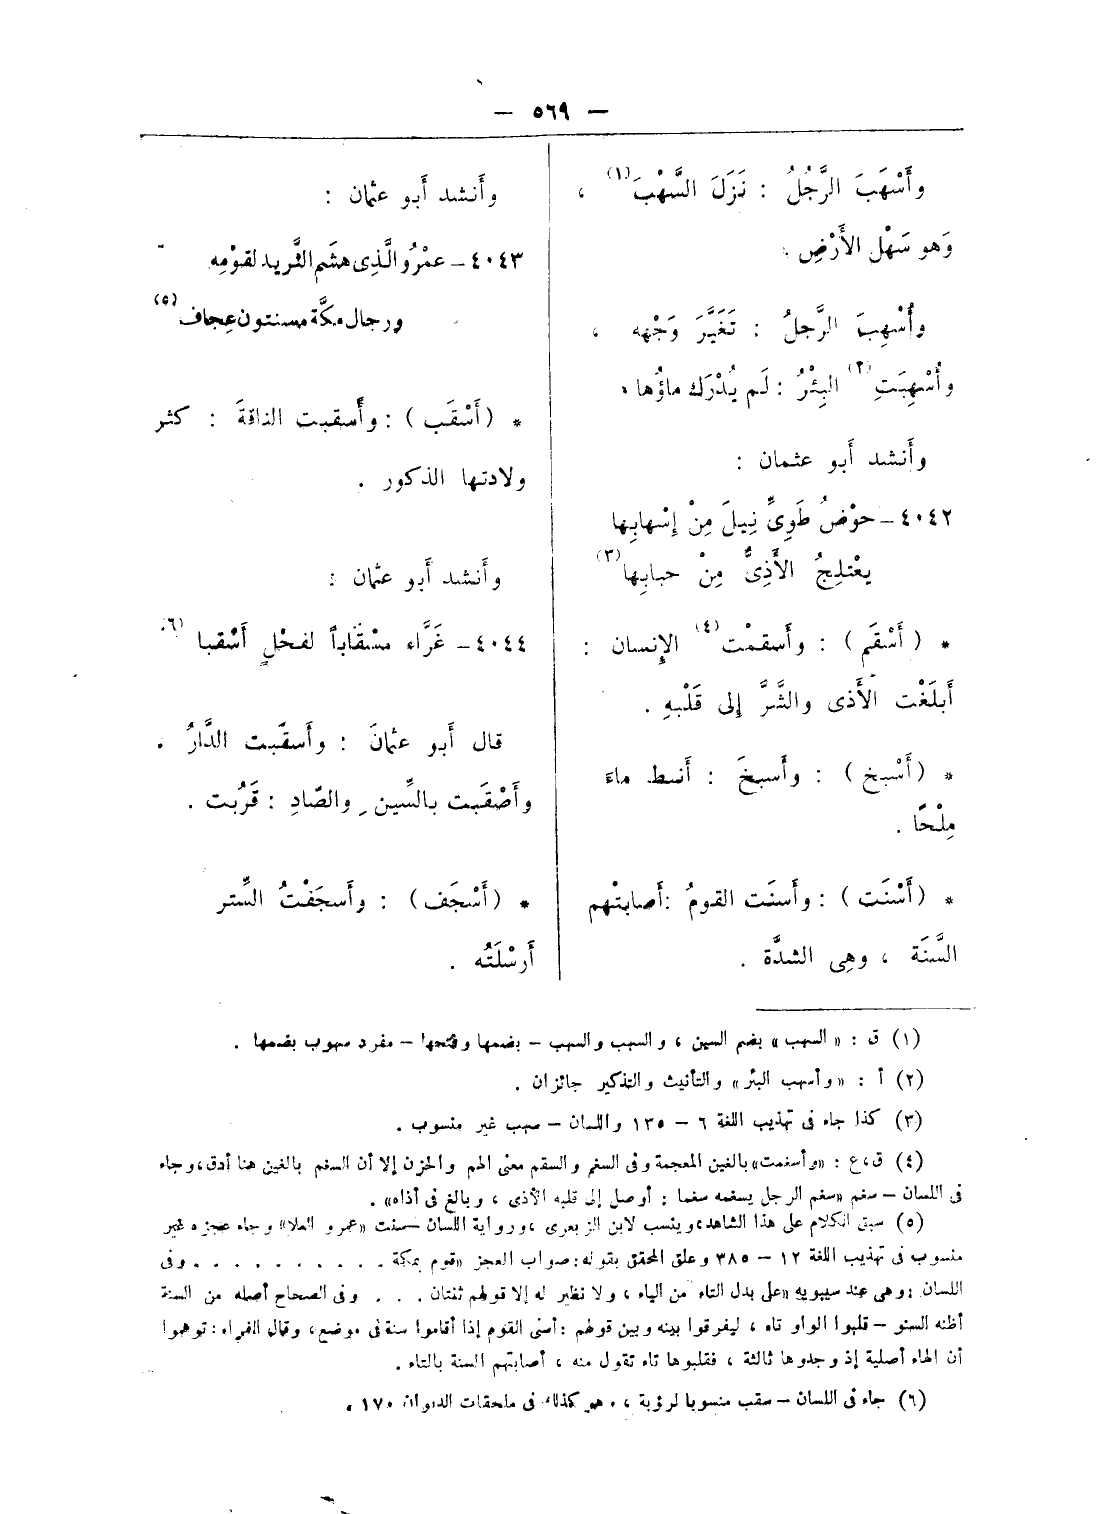 — ٥٦٩ —
وأَسْهَبَ الرَّجُلُ : نَزَلَ السَّهْبَ(١) ،
وَهو سَهْل الأَرْضِ .
وأُسْهِبَ الرَّجلُ : تَغَيَّرَ وَجْهه ،
وأُسْهِبَتِ(٢) البِئْرُ : لَم يُدْرَك ماؤُها .
وأَنشد أَبو عثمان :
٤٠٤٢ – حوْضُ طَوِىٍّ نِيلَ مِنْ إِسْهابِها
يعْتلِجُ الأَذِىُّ مِنْ حبابِها(٣)
* ( أَسْقَم ) : وأَسقمْت(٤) الإِنسان :
أَبلَغْت الأَذى والشَّرَّ إِلى قَلْبهِ .
* ( أَسْبخ ) : وأَسبخَ : أَنبط ماءً
مِلْحًا .
* ( أَسْنَت ) : وأَسنَت القومُ : أَصابتْهم
السَّنَة ، وهِى الشدَّة .
وأَنشد أَبو عثمان :
٤٠٤٣ – عمْرُو الَّذِى هشَم الثَّريد لقوْمِه
ورجال مكَّة مسنتون عِجاف(٥)
* ( أَسْقَب ) : وأَسقبت الناقةَ : كثر
ولادتها الذكور .
وأَنشد أَبو عثمان :
٤٠٤٤ – غَرَّاء مسْقاباً لفحْلٍ أَسْقبا(٦)
قال أَبو عثمانَ : وأَسقَبت الدَّارُ .
وأَصْقَبت بالسِّين والصّادِ : قَرُبت .
* ( أَسْجَف ) : وأَسجَفْتُ السِّتر
أَرْسَلَتُه .
(١) ق : « السهب » بضم السين ، والسهب والسهب – بضمها وفتحها – مفرد سهوب بضمها .
(٢) أ : « وأسهب البئر » والتأنيث والتذكير جائزان .
(٣) كذا جاء فى تهذيب اللغة ٦ – ١٣٥ واللسان – سهب غير منسوب .
(٤) ق، ع : « وأسغمت » بالغين المعجمة وفى السغم والسقم معنى الهم والحزن إلا أن السغم بالغين هنا أدق، وجاء
فى اللسان – سغم « سغم الرجل يسغمه سغما : أوصل إلى قلبه الأذى ، وبالغ فى أذاه » .
(٥) سبق الكلام على هذا الشاهد، وينسب لابن الزبعرى ، ورواية اللسان – سنت « عمرو العلا » وجاء عجزه غير
منسوب فى تهذيب اللغة ١٢ – ٣٨٥ وعلق المحقق بقوله : صواب العجز « قوم بمكة . . . . . . . . . . وفى
اللسان : وهى عند سيبويه « على بدل التاء من الياء ، ولا نظير له إلا قولهم ثنتان . . . وفى الصحاح أصله من السنة
أظنه السنو – قلبوا الواو تاء ، ليفرقوا بينه وبين قولهم : أسنى القوم إذا أقاموا سنة فى موضع، وقال الفراء : توهموا
أن الهاء أصلية إذ وجدوها ثالثة ، فقلبوها تاء تقول منه ، أصابتهم السنة بالتاء .
(٦) جاء فى اللسان – سقب منسوبا لرؤبة ، وهو كذلك فى ملحقات الديوان ١٧٠ .